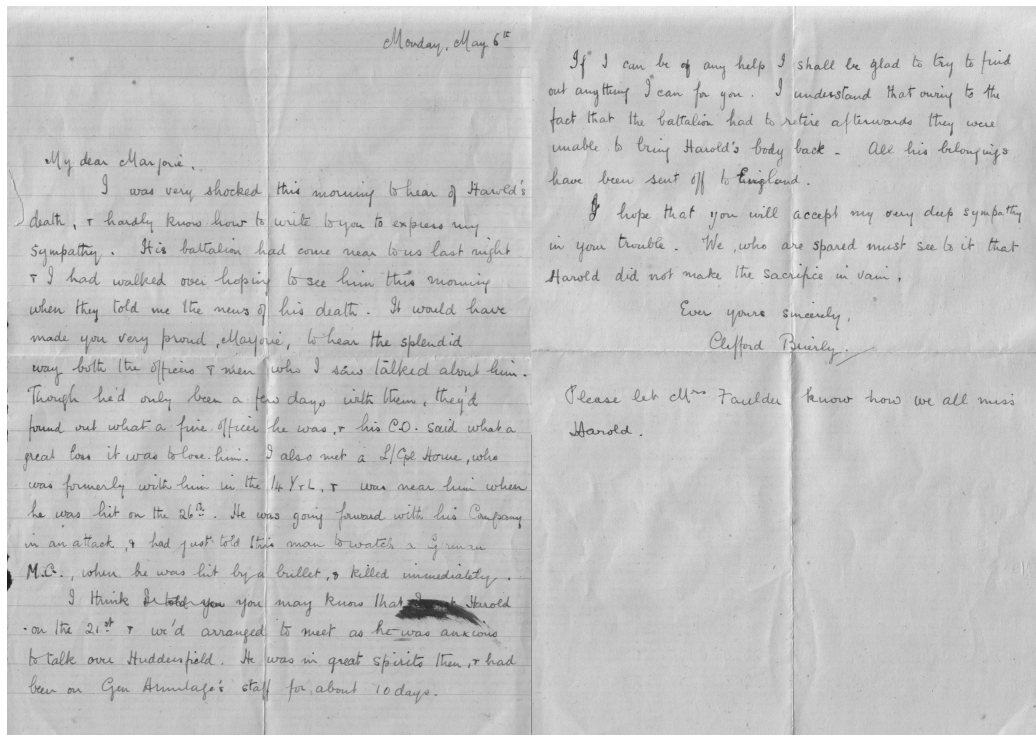 Monday, May 6th
My dear Marjorie,
I was very shocked this morning to hear of Harold's
death, & hardly know how to write to you to express my
sympathy. His battalion had come near to us last night
& I had walked over hoping to see him this morning
when they told me the news of his death. It would have
made you very proud, Marjorie, to hear the splendid
way both the officers & men who I saw talked about him.
Though he'd only been a few days with them, they'd
found out what a fine officer he was, & his C.O. said what a
great loss it was to lose him. I also met a L/Cpl Horne, who
was formerly with him in the 14 Y & L, & was near him when
he was hit on the 26th. He was going forward with his Company
in an attack, & had just told this man to watch a German
M.G., when he was hit by a bullet, & killed immediately.
I think I told you you may know that Harold
on the 21st & we'd arranged to meet as he was anxious
to talk over Huddersfield. He was in great spirits then, & had
been on Gen Armitage's staff for about 10 days.
If I can be of any help I shall be glad to try to find
out anything I can for you. I understand that owing to the
fact that the battalion had to retire afterwards they were
unable to bring Harold's body back. All his belongings
have been sent off to England.
I hope that you will accept my very deep sympathy
in your trouble. We, who are spared must see to it that
Harold did not make the sacrifice in vain.
Ever yours sincerely,
Clifford Brierly.
Please let Mrs Faulder know how we all miss
Harold.